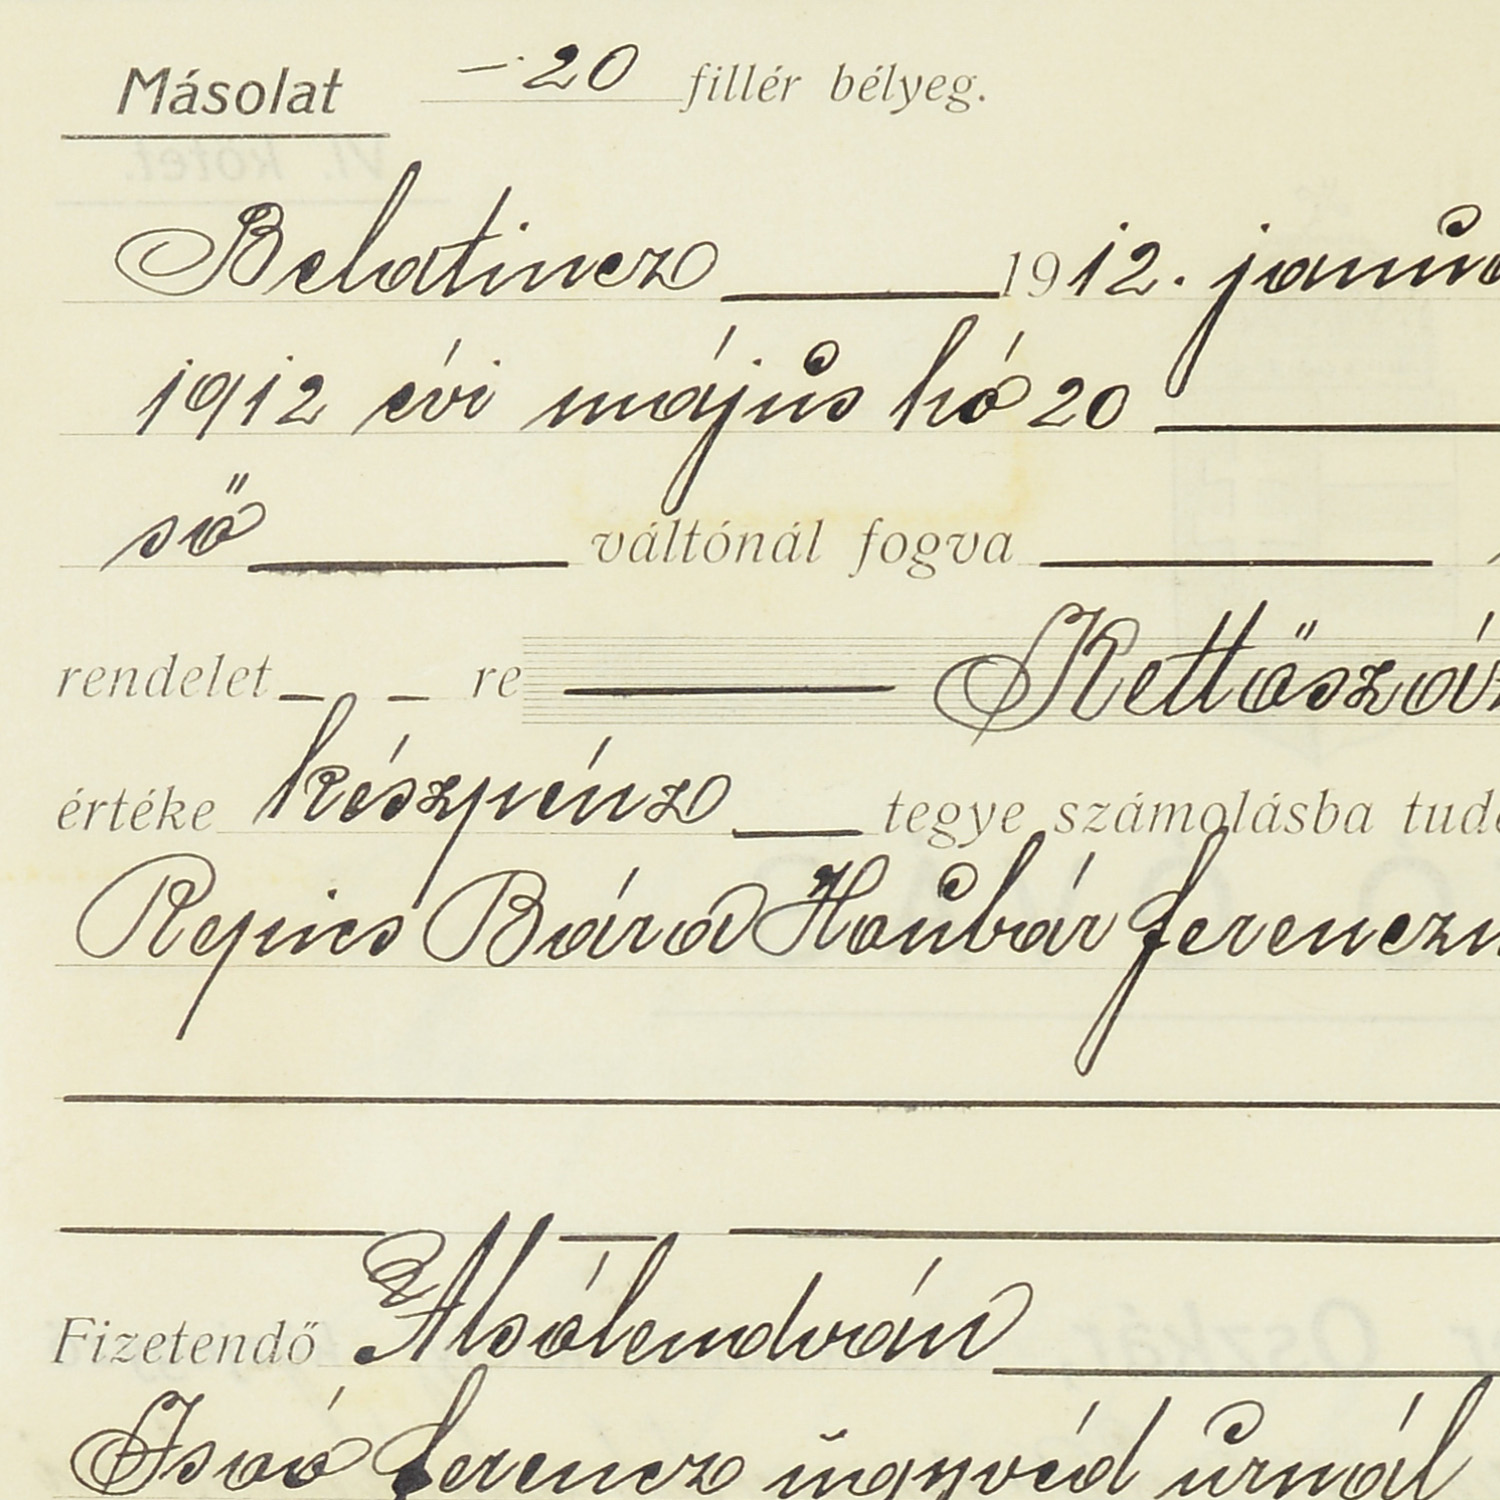 Másolat – 20 fillér bélyeg.
Belatincz 1912. janua
1912 évi május hó 20
ső váltónál fogva
rendelet – – re Kettőszáz
értéke készpénz tegye számolásba tudó
Repics Bára Houbár Ferenczn
Fizetendő Alsólendván
Isoó Ferencz ügyvéd úrnál